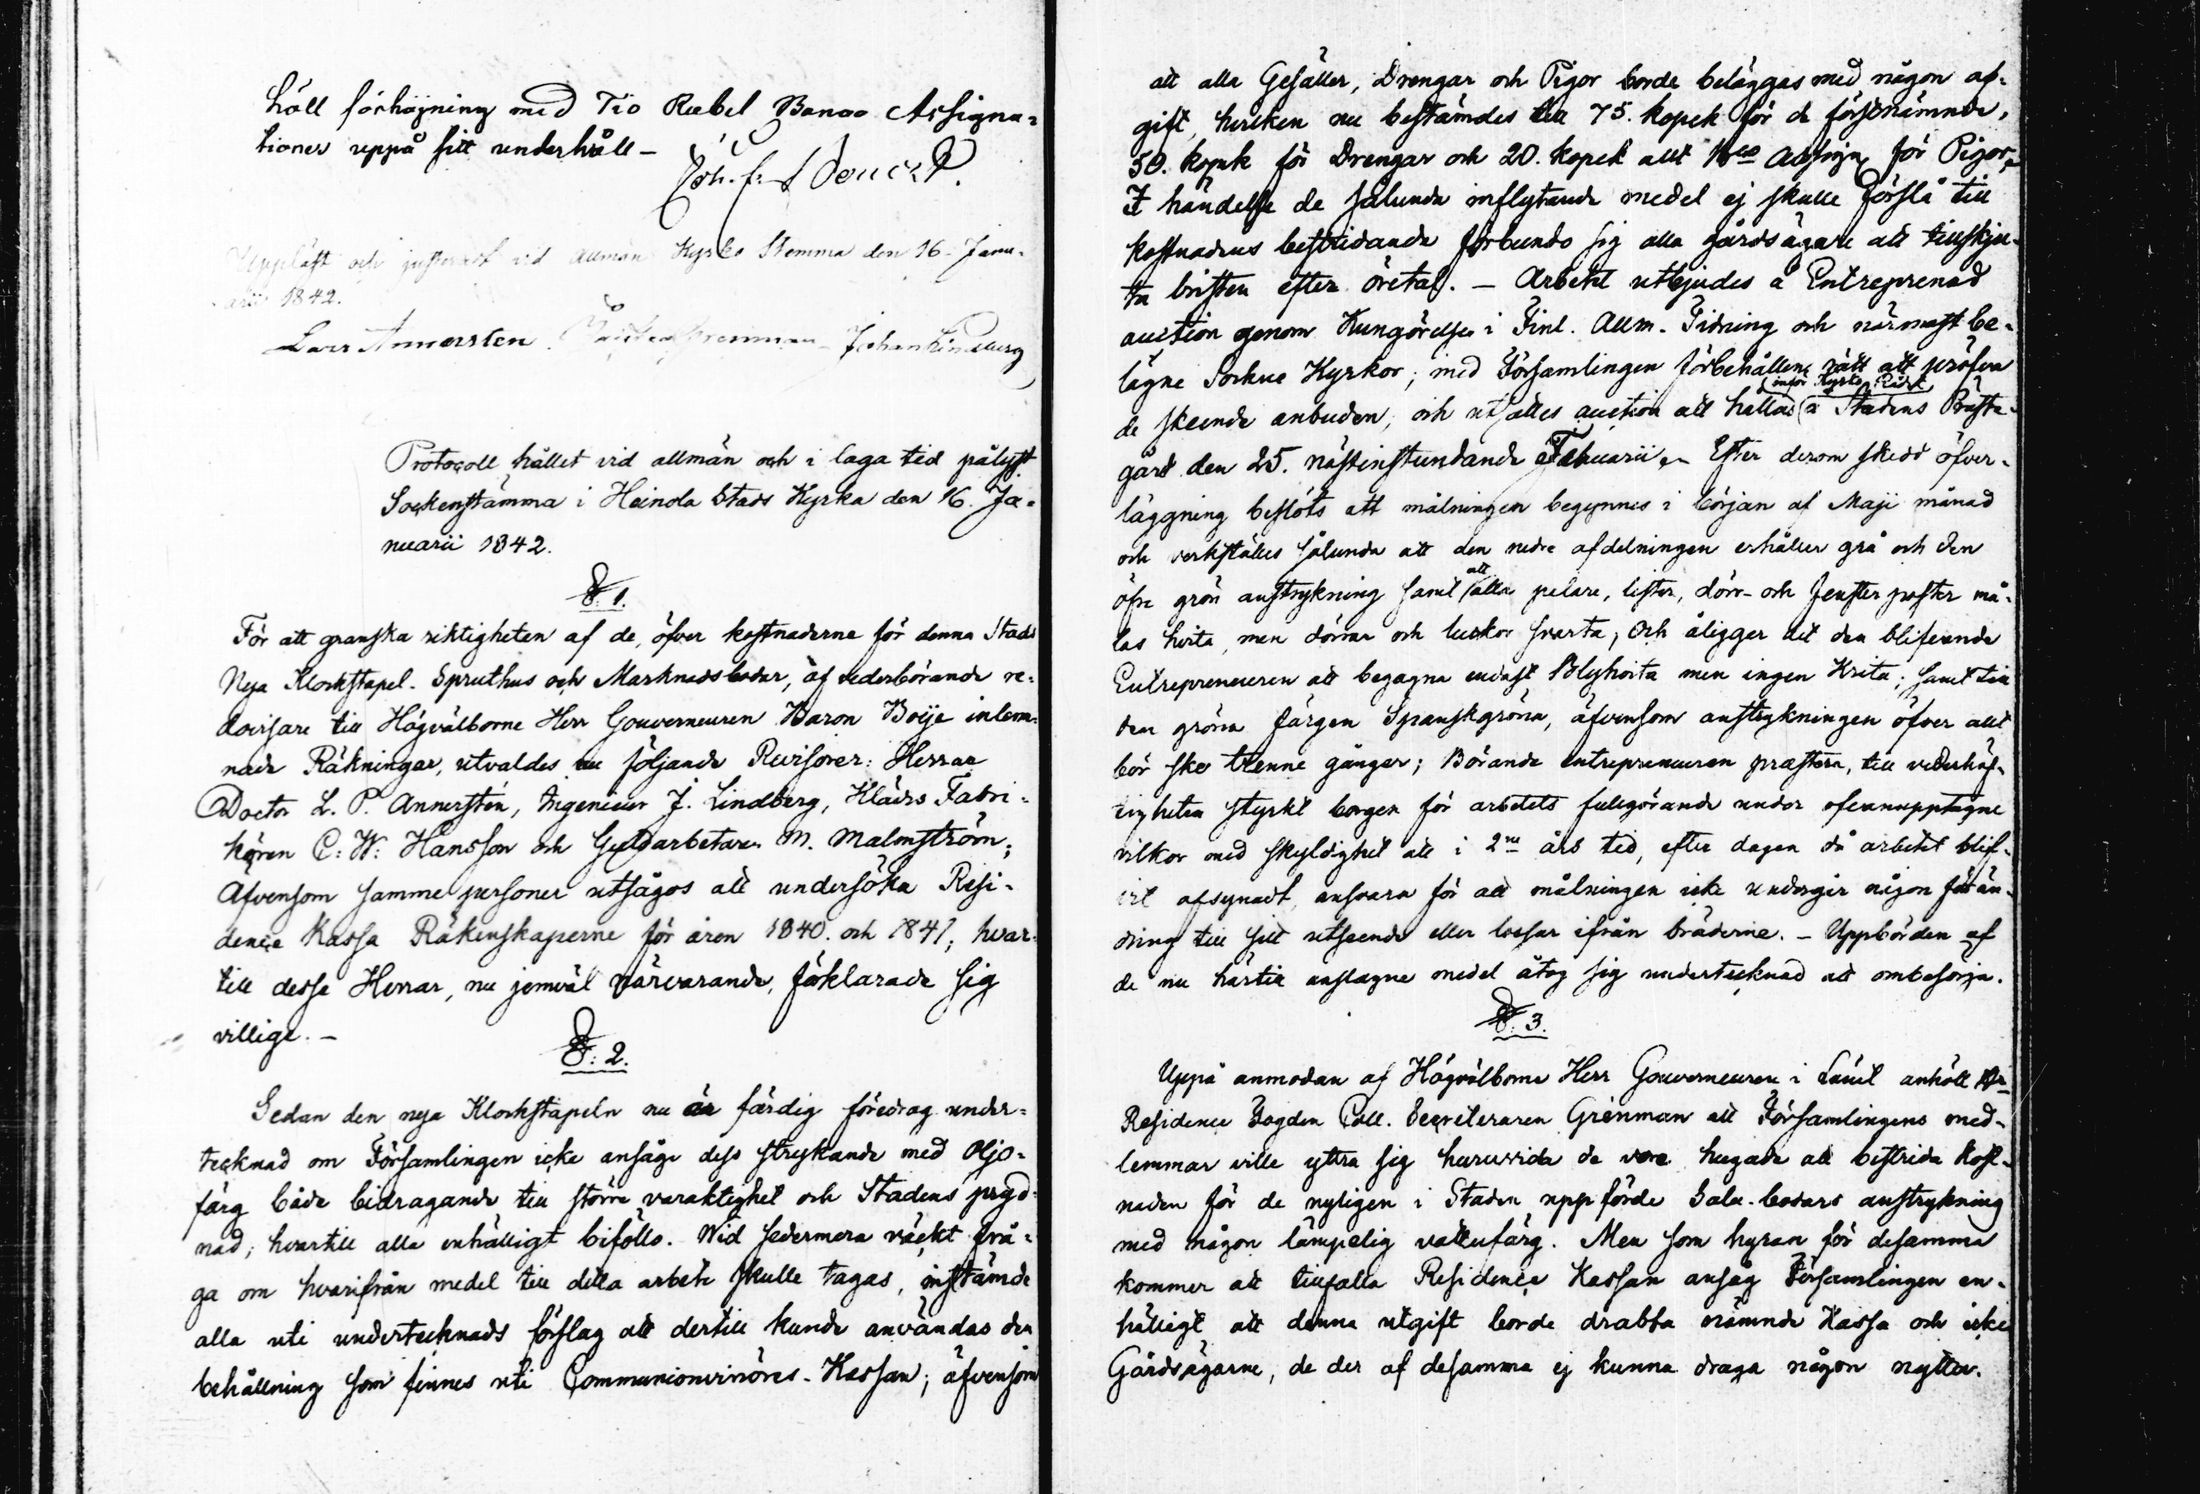 håll förhöjning med Tio Rubel Banco Assigna-
tioner uppå sitt underhåll –
Uppläst och justerat vid allmän Kyrko Stemma den 16 Janu-
arii 1842.
Lars Annersten. Johan Lindberg
Protocoll hållet vid allmän och i laga tid pålyst
Sockenstämma i Heinola Stads Kyrka den 16. Ja-
nuarii 1842.
§. 1.
För att granska riktigheten af de, öfver kostnaderne för denna Stads
Nya Klockstapel. Spruthus och Marknadsbodar, af vederbörande re-
dovisare till Högvälborne Herr Gouverneuren Baron Boije inlem-
nade Räkningar, utvaldes nu följande Revisorer: Herrar
Doctor L. P. Annerstén, Ingenieur J. Lindberg, Klädes Fabri-
kören C: W: Hansson och Guldarbetaren M. Malmström;
Äfvensom samme personer utsågos att undersöka Resi-
dence Kassa Räkenskaperne för åren 1840. och 1841; hvar-
till desse Herrar, nu jemväl närvarande, föklarade sig
villige. –
§: 2.
Sedan den nya Klockstapeln nu är färdig föredrag under-
tecknad om Församlingen icke ansåge dess strykande med Oljo-
färg både bidragande till större varaktighet och Stadens pryd-
nad; hvartill alla enhälligt biföllo. Wid sedermera väckt frå-
ga om hvarifrån medel till detta arbete skulle tagas, instämde
alla uti undertecknads förslag att dertill kunde användas den
behållning som finnes uti Communionvinöres-Kassan; äfvensom
att alla Gesäller, Drengar och Pigor borde beläggas med någon af-
gift, hvilken nu bestämdes till 75. kopek för de förstnämnde,
50. kopek för Drengar och 20. kopek allt Bco Assign för Pigor.
I händelse de sålunda inflytande medel ej skulle förslå till
kostnadens bestridande förbundo sig alla gårdsägare att tillskju-
ta bristen efter öretal. – Arbetet utbjudes å Entreprenad
auction genom Kungörelse i Finl. Allm. Tidning och närmast be-
lägne Sockne Kyrkor; med Församlingen förbehållen rätt att pröfva
de skeende anbuden, och utsattes auction att hållas inför Kyrko Rådet å Stadens Prästa-
gård den 25. nästinstundande Februarii. – Efter derom skedd öfver-
läggning beslöts att målningen begynnes i början af Maji månad
och verkställes sålunda att den nedre afdelningen erhåller grå och den
öfre grön anstrykning samt att alla pelare, lister, dörr- och fenster poster må-
las hvita, men dörrar och luckor svarta; Och åligger det den blifvande
Entrepreneuren att begagna endast Blyhvita men ingen Krita; samt till
den gröna färgen Spanskgröna, äfvensom anstrykningen öfver allt
bör ske trenne gånger; Börande entrepreneuren præstera, till vederhäf-
tigheten styrkt borgen för arbetets fullgörande under ofvanupptagne
vilkor med skyldighet att i 2ne års tid, efter dagen då arbetet blif-
vit afsynadt, ansvara för att målningen icke undergår någon förän-
dring till sitt utseende eller lossar ifrån bräderne. – Uppbörden af
de nu härtill anslagne medel åtog sig undertecknad att ombesörja.
§: 3.
Uppå anmodan af Högvälborne Herr Gouverneuren i Länet anhöll Hr
Residence Fogden Coll. Secreteraren Grénman att Församlingens med-
lemmar ville yttra sig huruvida de vore hugade att bestrida kost-
naden för de nyligen i Staden uppförde Salu-bodars anstrykning
med någon lämpelig vattufärg. Men som hyran för desamma
kommer att tillfalla Residence Kassan ansåg Församlingen en-
hälligt att denna utgift borde drabba nämnde Kassa och icke
Gårdsägarne, de der af desamma ej kunna draga någon nytta.